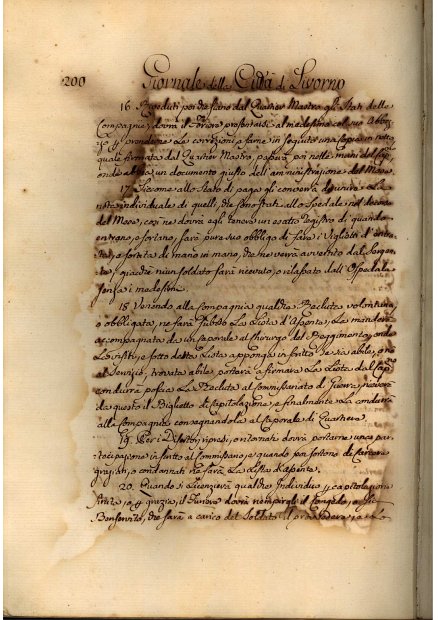 200 Giornale della Città di Livorno
16. Veduti poi che siano dal Quartier Mastro gli Stati delle
Compagnie, dovrà il Foriere presentarsi al medesimo col suo
prendere le correzioni e farne in seguito una Copia in netto
quale firmata dal Quartier Mastro, passerà poi nelle mani del
abbia un documento giusto dell'amministrazione del Mese.
17. Siccome allo Stato di paga gli converrà d'unire la
nota individuale di quelli, che sono stati allo Spedale nel decorso
del Mese, così ne dovrà egli tenere un esatto Registro di quando
entrano, e sortano, farà pure suo obbligo di fare i Viglietti d'entra-
ta, e sortita di mano in mano, che ne verrà avvertito dal Sergen-
te, giacchè niun soldato sarà ricevuto, o rilasciato dall'Ospedale
senza i medesimi.
18. Venendo alla Compagnia qualche Recluta volontaria,
o obbligata, ne farà subito la Lista d'Assento, la manderà
accompagnata da un Caporale al Chirurgo del Reggimento, onde
la visiti, e sotto detta Lista apponga in scritto se sia abile, o no
al Servizio, trovata abile, porterà a firmare la Lista dal
condurrà poscia la Recluta al Commissariato di Guerra, riceverà
da questo il Biglietto di Capitolazione e finalmente la condurrà
alla Compagnia consegnandola al Caporale di Quartiere.
19. Per i Disertori ripresi, o ritornati dovrà portarne una par-
tecipazione in scritto al Commissario, e quando poi sortono di carcere
graziati, o condannati ne farà la Lista d'Assento.
20. Quando si licenzierà qualche Individuo per capitolazione
finita, o per grazia, il Foriere dovrà riempirgli il Congedo, o sia
Benservito, che sarà a carico del Soldato il provvedere,